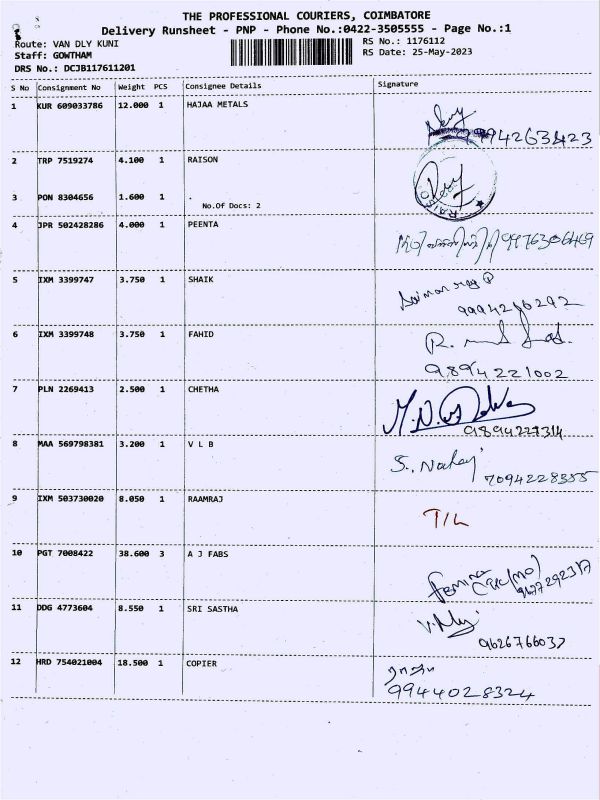 THE PROFESSIONAL COURIERS, COIMBATORE
Delivery Runsheet - PNP - Phone No.:0422-3505555 - Page No.:1
Route: VAN DLY KUNI
RS No.: 1176112
Staff: GOWTHAM
RS Date: 25-May-2023
DRS No.: DCJB117611201
S No Consignment No Weight PCS Consignee Details Signature
1 KUR 609033786 12.000 1 HAJAA METALS
9942633423
2 TRP 7519274 4.100 1 RAISON
3 PON 8304656 1.600 1 .
No.Of Docs: 2
4 JPR 502428286 4.000 1 PEENTA
9976306469
5 IXM 3399747 3.750 1 SHAIK
9994216292
6 IXM 3399748 3.750 1 FAHID
9894221002
7 PLN 2269413 2.500 1 CHETHA
9894227314
8 MAA 569798381 3.200 1 V L B
7094228355
9 IXM 503730020 8.050 1 RAAMRAJ
T/L
10 PGT 7008422 38.600 3 A J FABS
9677292317
11 DDG 4773604 8.550 1 SRI SASTHA
9626766037
12 HRD 754021004 18.500 1 COPIER
9944028324